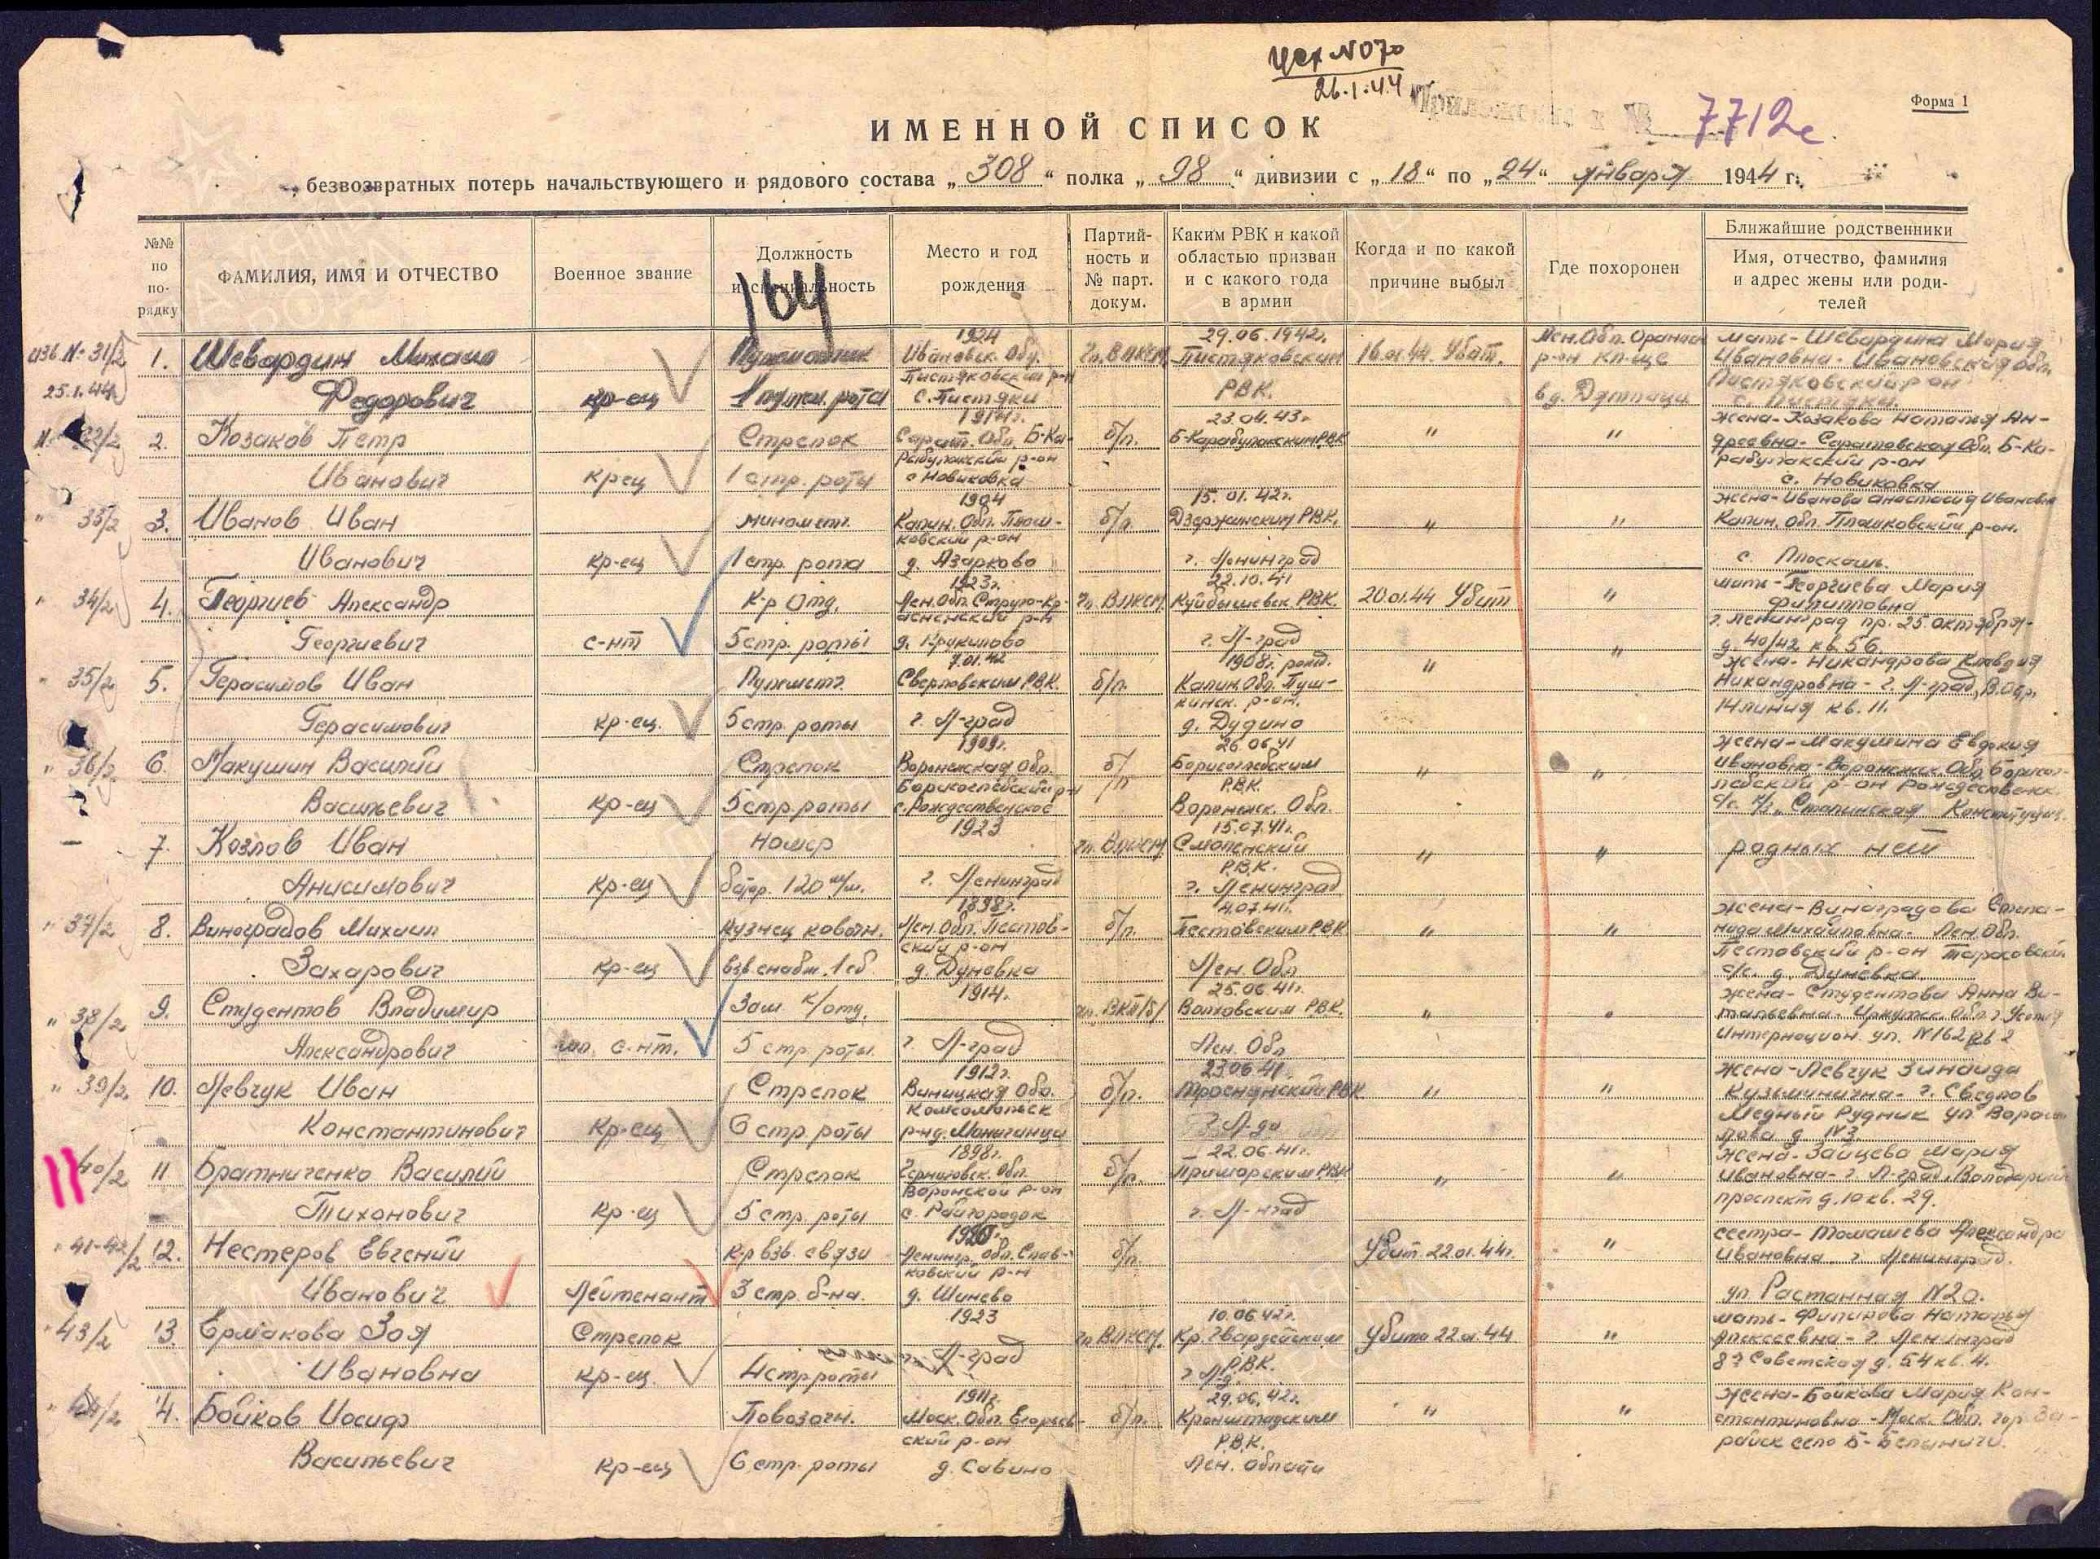 Исх №070
26.1.44
Приложение к № 7712с
Форма 1
ИМЕННОЙ СПИСОК
безвозвратных потерь начальствующего и рядового состава „308“ полка „98“ дивизии с „18“ по „24“ января 1944 г.
№№ по по-рядку
ФАМИЛИЯ, ИМЯ И ОТЧЕСТВО
Военное звание
Должность и специальность
164
Место и год рождения
Партий-ность и № парт. докум.
Каким РВК и какой областью призван и с какого года в армии
Когда и по какой причине выбыл
Где похоронен
Ближайшие родственники
Имя, отчество, фамилия и адрес жены или роди-телей
изв. № 31/2 25.1.44
1. Шевардин Михаил Федорович
кр-ец
Пулеметчик 1 пулем. рота
1924 Ивановск. Обл. Пистяковский р-н с. Пистяки
чл. ВЛКСМ
29.06.1942г. Пистяковским РВК.
16.01.44. Убит.
Лен. Обл. р-он кл-ще в д.
мать-Шевардина Мария Ивановна-Ивановская Обл. Пистяковский р-он с. Пистяки.
32/2
2. Козаков Петр Иванович
кр-ец
Стрелок 1 стр. роты
Сарат. Обл. Б-Ка-рабулакский р-он с Новиковка
б/п.
23.04.43г. Б-Карабулакским РВК
"
"
жена-Козакова Наталья Ан-дреевна-Саратовская Обл. Б-Ка-рабулакский р-он с. Новиковка
" 33/2
3. Иванов Иван Иванович
кр-ец
минометч. 1 стр. рота
1904 Калин. Обл. Плош-ковский р-он д. Азарково
б/п
15.01.42г. Дзержинским РВК. г. Ленинград
"
"
жена-Иванова Анастасия Ивановна Калин. Обл. Плошковский р-он. с. Плоскошь.
" 34/2
4. Георгиев Александр Георгиевич
с-нт
К-р Отд. 5 стр. роты
1923г. Лен. Обл. Струго-Кр-асненский р-н д.
чл. ВЛКСМ.
22.10.41 Куйбышевск. РВК. г. Л-град
20.01.44 Убит
"
мать-Георгиева Мария Филипповна г. Ленинград пр. 25 октября-д. 40/42 кв. 56.
" 35/2
5. Герасимов Иван Герасимович
кр-ец.
Пулеметч. 5 стр. роты
7.01.42 Свердловским РВК. г. Л-град
б/п.
1908г. рожд. Калин. Обл. Пуш-кинск. р-он. д. Дудино
"
"
жена-Никандрова Клавдия Никандровна-г. Л-град, В. Остр. 14 линия кв. 11.
" 36/2
6. Макушин Василий Васильевич
кр-ец
Стрелок 5 стр. роты
1909г. Воронежская Обл. Борисоглебский р-н с. Рождественское
б/п
26.06.41 Борисоглебским РВК. Воронежск. Обл.
"
"
жена-Макушина Евдокия Ивановна-Воронежск. Обл. Борисог-лебский р-он Рождественск. с/с. к/з „Сталинская Конституция.
-
7. Козлов Иван Анисимович
кр-ец
Номер батар. 120 м/м.
1923 г. Ленинград
чл. ВЛКСМ
15.07.41г. Смоленский РВК. г. Ленинград
"
"
родных нет
" 37/2
8. Виноградов Михаил Захарович
кр-ец
Кузнец ковочн. взв. снабж. 1 сб
1898г. Лен. Обл. Пестов-ский р-он д. Дуневка
б/п.
4.07.41г. Пестовским РВК Лен. Обл
"
"
жена-Виноградова Степа-нида Михайловна-Лен. Обл. Пестовский р-он Тарасовский с/с. д. Дуневка
" 38/2
9. Студентов Владимир Александрович
мл. с-нт.
Зам к/отд. 5 стр. роты
1914г. г. Л-град
чл. ВКП/б/
25.06.41г. Волховским РВК. Лен. Обл
"
"
жена-Студентова Анна Ви-тальевна-Иркутск. Обл. г. Усолье Интернацион. ул. №162 кв 2
" 39/2
10. Левчук Иван Константинович
кр-ец
Стрелок 6 стр. роты
1912г. Виницкая Обл. Комсомольск р-н д.
б/п.
23.06.41 РВК г. Л-да
"
"
жена-Левчук Зинаида Кузьминична-г. Свердлов Медный Рудник ул Вороши-лова д №3
" 40/2
11 Братниченко Василий Тихонович
кр-ец
Стрелок 5 стр. роты
1898г. Черниговск. Обл. р-он с. Райгородок
б/п.
22.06.41г. Приморским РВК г. Л-град
"
"
жена-Зайцева Мария Ивановна-г. Л-град, Володарский проспект д. 10 кв. 29.
" 41-42/2
12. Нестеров Евгений Иванович
Лейтенант
К-р взв. связи 3 стр. б-на.
Ленингр. Обл. Слав-ковский р-н д. Шинево
б/п.
Убит 22.01.44г.
"
сестра-Томашева Александра Ивановна г. Ленинград. ул. Растанная №20.
" 43/2
13. Ермакова Зоя Ивановна
Стрелок кр-ец.
4 стр. роты
1923 Л-град
чл. ВЛКСМ.
10.06.42г. Кр. Гвардейским РВК. г. Л-д
Убита 22.01.44
"
мать-Филинова Наталья Алексеевна-г. Ленинград 8я Советская д. 54 кв. 4.
" 44/2
14. Бойков Иосиф Васильевич
кр-ец
Повозочн. 6 стр. роты
1911г. Моск. Обл. Егорьев-ский р-он д. Савино
б/п.
29.06.42г. Кронштадским РВК. Лен. области
"
"
жена-Бойкова Мария Кон-стантиновна-Моск. Обл. гор. За-райск село Б-Белыничи.